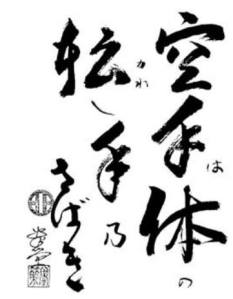 空手は体の
転し手乃
さばき